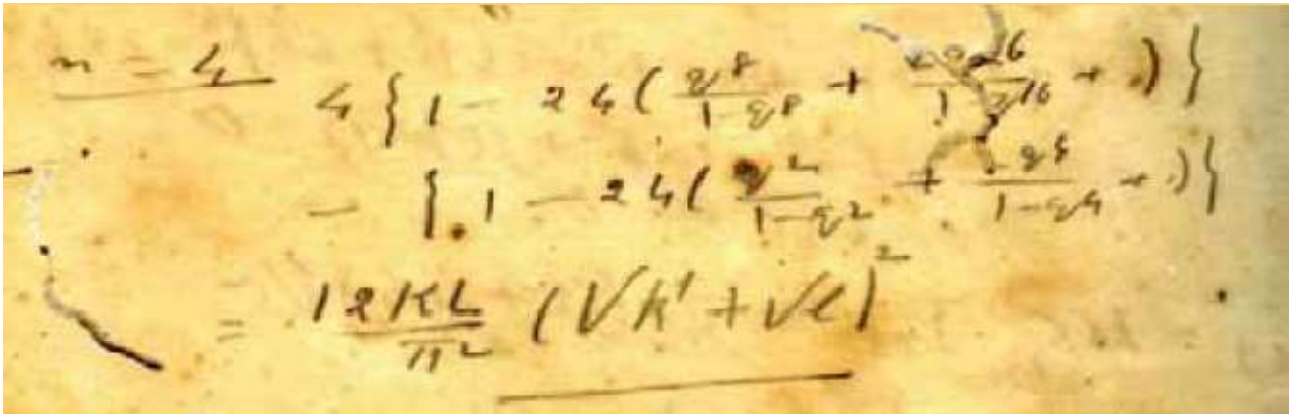 n = 4
4 { 1 - 24 ( q^8/(1-q^8) + q^16/(1 q^16) + . ) }
- { . 1 - 24 ( q^2/(1-q^2) + q^4/(1-q^4) + . ) }
= 12KL/π^2 ( √k' + √l )^2